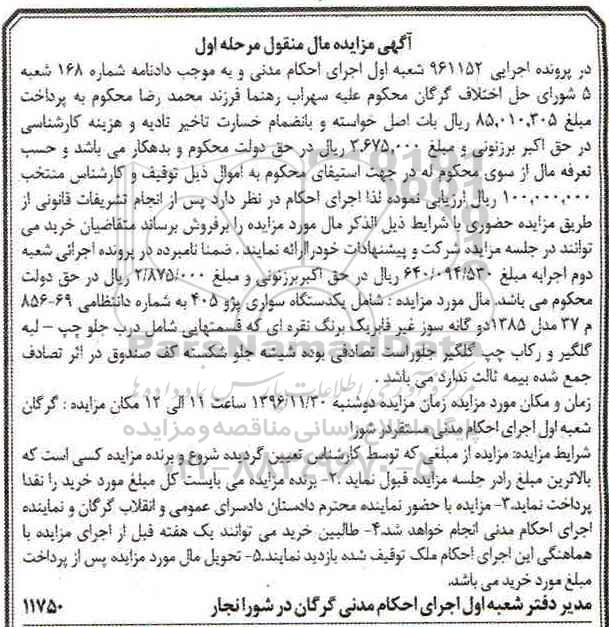 آگهی مزایده مال منقول مرحله اول
در پرونده اجرایی ۹۶۱۱۵۲ شعبه اول اجرای احکام مدنی و به موجب دادنامه شماره ۱۶۸ شعبه
۵ شورای حل اختلاف گرگان محکوم علیه سهراب رهنما فرزند محمد رضا محکوم به پرداخت
مبلغ ۸۵,۰۱۰,۳۰۵ ریال بات اصل خواسته و بانضمام خسارت تاخیر تادیه و هزینه کارشناسی
در حق اکبر برزنونی و مبلغ ۳,۶۷۵,۰۰۰ ریال در حق دولت محکوم و بدهکار می باشد و حسب
تعرفه مال از سوی محکوم له در جهت استیفای محکوم به اموال ذیل توقیف و کارشناس منتخب
۱۰۰,۰۰۰,۰۰۰ ریال ارزیابی نموده لذا اجرای احکام در نظر دارد پس از انجام تشریفات قانونی از
طریق مزایده حضوری با شرایط ذیل الذکر مال مورد مزایده را برفروش برساند متقاضیان خرید می
توانند در جلسه مزایده شرکت و پیشنهادات خودرا ارائه نمایند . ضمنا نامبرده در پرونده اجرائی شعبه
دوم اجرابه مبلغ ۶۴۰/۰۹۴/۵۳۰ ریال در حق اکبربرزنونی و مبلغ ۲/۸۷۵/۰۰۰ ریال در حق دولت
محکوم می باشد. مال مورد مزایده : شامل یکدستگاه سواری پژو ۴۰۵ به شماره دانتظامی ۶۹-۸۵۶
م ۳۷ مدل ۱۳۸۵دو گانه سوز غیر فابریک برنگ نقره ای که قسمتهایی شامل درب جلو چپ – لبه
گلگیر و رکاب چپ گلگیر جلوراست تصادفی بوده شیشه جلو شکسته کف صندوق در اثر تصادف
جمع شده بیمه ثالث ندارد می باشد .
زمان و مکان مورد مزایده زمان مزایده دوشنبه ۱۳۹۶/۱۱/۳۰ ساعت ۱۱ الی ۱۲ مکان مزایده : گرگان
شعبه اول اجرای احکام مدنی مستقردر شورا
شرایط مزایده: مزایده از مبلغی که توسط کارشناس تعیین گردیده شروع و برنده مزایده کسی است که
بالاترین مبلغ رادر جلسه مزایده قبول نماید .۲- برنده مزایده می بایست کل مبلغ مورد خرید را نقدا
پرداخت نماید.۳- مزایده با حضور نماینده محترم دادستان دادسرای عمومی و انقلاب گرگان و نماینده
اجرای احکام مدنی انجام خواهد شد.۴- طالبین خرید می توانند یک هفته قبل از اجرای مزایده با
هماهنگی این اجرای احکام ملک توقیف شده بازدید نمایند.۵- تحویل مال مورد مزایده پس از پرداخت
مبلغ مورد خرید می باشد.
مدیر دفتر شعبه اول اجرای احکام مدنی گرگان در شورا نجار ۱۱۷۵۰
ParsNamadData
پایگاه اطلاع رسانی مناقصه و مزایده
۰۲۱-۸۸۳۴۹۶۷۰-۵